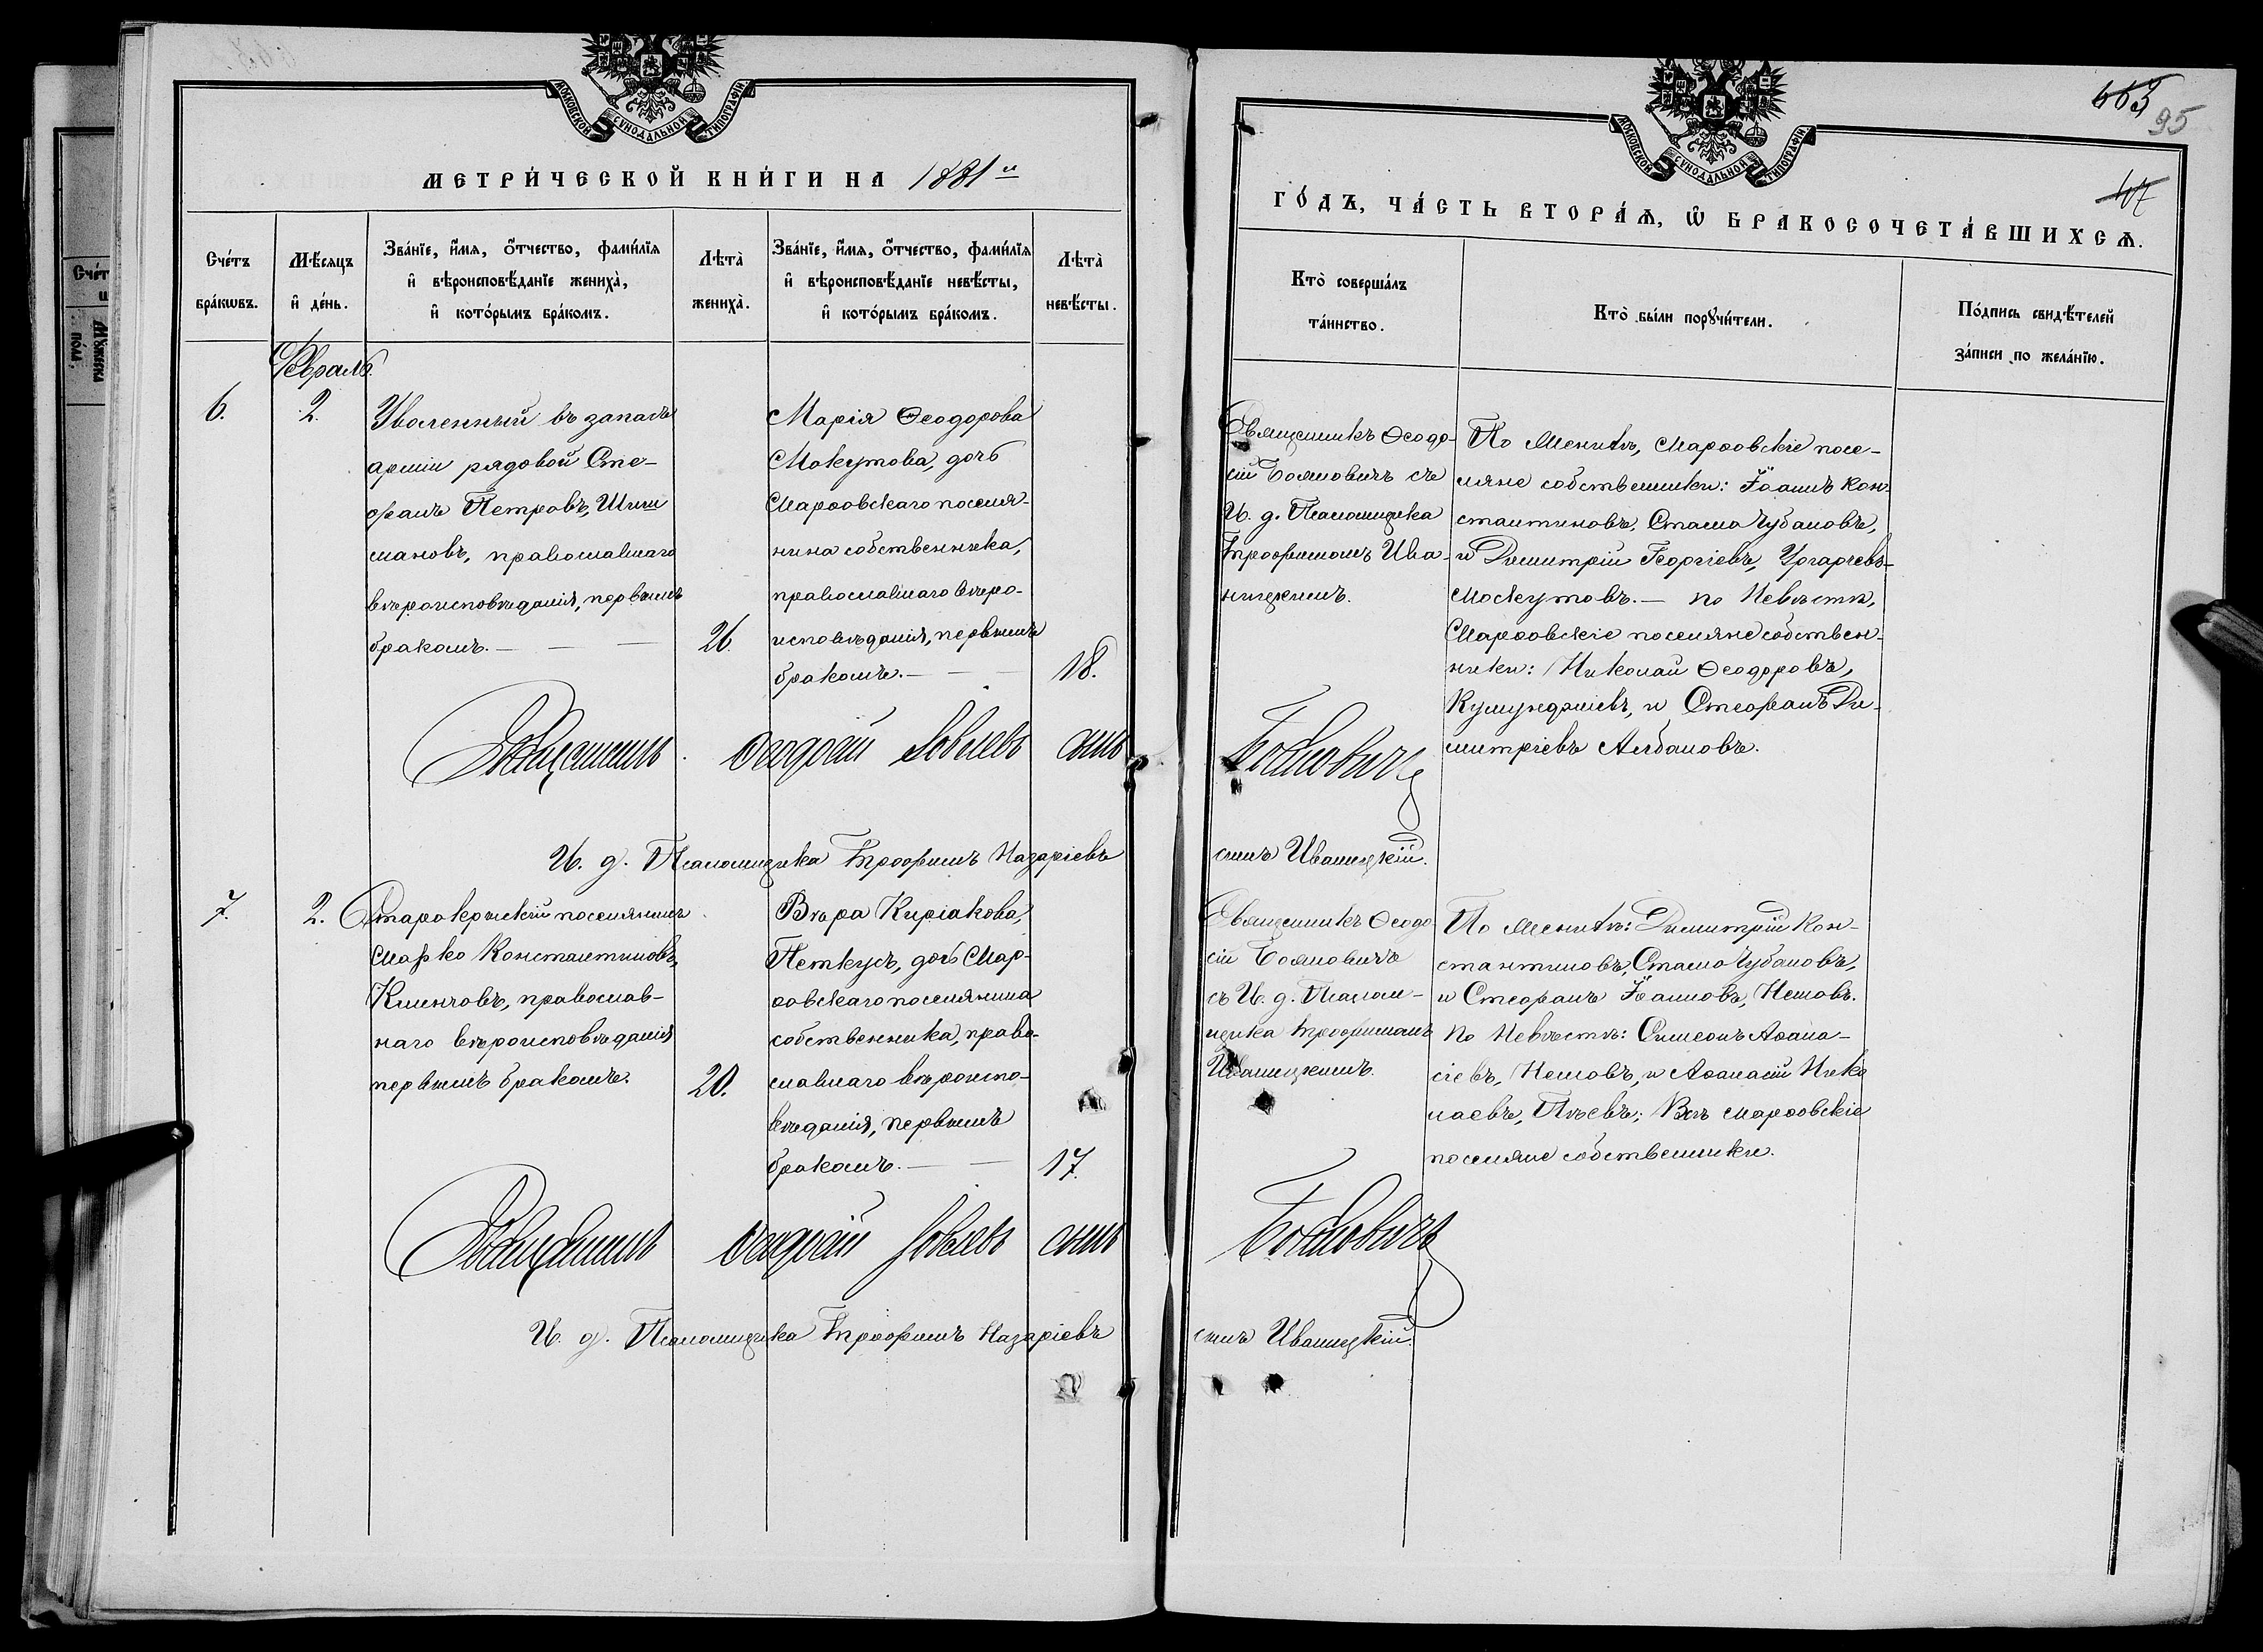 МОСКОВСКОЙ СѴНОДАЛЬНОЙ ТИПОГРАФІИ
МЕТРИ́ЧЕСКОЙ КНИ́ГИ НА 1881й
Сче́тъ бра́кѡвъ.
Мѣ́сяцъ и҆ де́нь.
Зва́нїе, и҆́мя, ѻ҆́тчество, фами́лїя
и҆ вѣроисповѣ́данїе жениха̀,
и҆ кото́рымъ бра́комъ.
Лѣта̀ жениха̀.
Зва́нїе, и҆́мя, ѻ҆́тчество, фами́лїя
и҆ вѣроисповѣ́данїе невѣ́сты,
и҆ кото́рымъ бра́комъ.
Лѣта̀ невѣ́сты.
Февраль
6.
2.
Уволенный въ запасъ
арміи рядовой Сте-
фанъ Петровъ, Шиш
мановъ, православнаго
вѣроисповѣданія, первымъ
бракомъ.
26.
Марія Ѳеодорова
Мокутова, дочь
Марѳовскаго поселя-
нина собственника,
православнаго вѣро-
исповѣданія, первымъ
бракомъ.
18.
Священникъ Ѳеодосій Іовлевъ сынъ
И. д. Псаломщика Трофимъ Назаріевъ
7.
2.
Старокрымскій поселянинъ
Марко Константиновъ,
Климчовъ, православ-
наго вѣроисповѣданія
первымъ бракомъ.
20.
Вѣра Киріакова,
Петкусъ, дочь Мар-
ѳовскаго поселянина
собственника, право-
славнаго вѣроиспо-
вѣданія, первымъ
бракомъ.
17.
Священникъ Ѳеодосій Іовлевъ сынъ
И. д. Псаломщика Трофимъ Назаріевъ
МОСКОВСКОЙ СѴНОДАЛЬНОЙ ТИПОГРАФІИ
95
ГО́ДЪ, ЧА́СТЬ ВТОРА́Ѧ, Ѡ҆ БРАКОСОЧЕТА́ВШИХСѦ.
Кто̀ соверша́лъ
та́инство.
Кто̀ бы́ли порꙋчи́тели.
По́дпись свидѣ́телей
за́писи по жела́нїю.
Священникъ Ѳеодо-
сій Бояновичъ съ
И. д. Псаломщика
Трофимомъ Ива-
ницкимъ.
По Женихѣ, Марѳовскіе посе-
ляне собственники: Іоаннъ Кон-
стантиновъ, Стамо Чубановъ,
и Димитрій Георгіевъ,
Мокутовъ. — по Невѣстѣ,
Марѳовскіе поселяне собствен-
ники: Николай Ѳеодоровъ,
и Стефанъ Ди-
митріевъ Албановъ.
Бояновичъ
сынъ Иваницкій.
Священникъ Ѳеодо-
сій Бояновичъ
съ И. д. Псалом-
щика Трофимомъ
Иваницкимъ.
По Женихѣ: Димитрій Кон-
стантиновъ, Стамо Чубановъ,
и Стефанъ Іоанновъ, Неновъ.
По Невѣстѣ: Симеонъ Аѳана-
сіевъ, Неновъ, и Аѳанасій Нико
лаевъ, Всѣ Марѳовскіе
поселяне собственники.
Бояновичъ
сынъ Иваницкій.